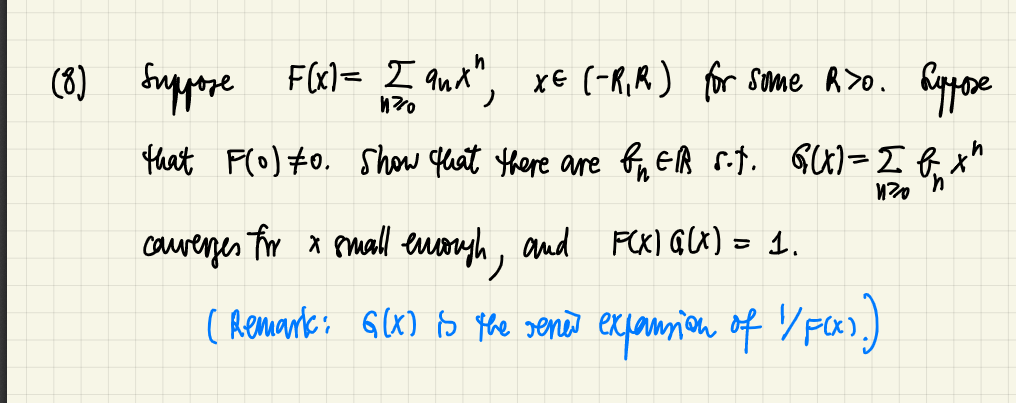 (8) Suppose F(x) = ∑_{n≥0} a_n x^n, x ∈ (-R, R) for some R>0. Suppose
that F(0) ≠ 0. Show that there are b_n ∈ ℝ s.t. G(x) = ∑_{n≥0} b_n x^n
converges for x small enough, and F(x) G(x) = 1.
(Remark: G(x) is the series expansion of 1/F(x).)